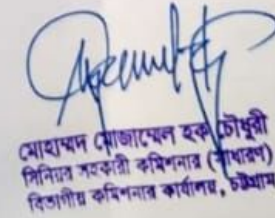 মোহাম্মদ মোজাম্মেল হক চৌধুরী
সিনিয়র সহকারী কমিশনার (সাধারণ)
বিভাগীয় কমিশনার কার্যালয়, চট্টগ্রাম